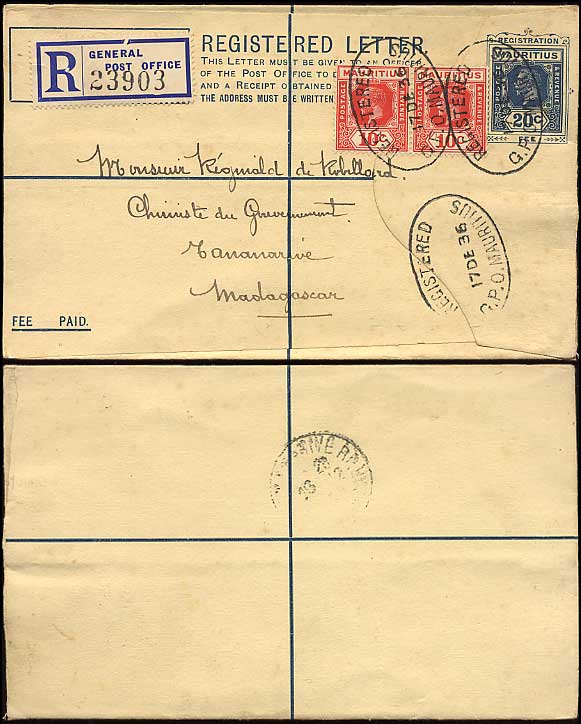 GENERAL
POST OFFICE
R 23903
REGISTERED LETTER.
THIS LETTER MUST BE GIVEN TO AN OFFICER
OF THE POST OFFICE TO
AND A RECEIPT OBTAINED
THE ADDRESS MUST BE WRITTEN
MAURITIUS
POSTAGE
& REVENUE
10c
MAURITIUS
POSTAGE
& REVENUE
10c
REGISTRATION
MAURITIUS
POSTAGE
& REVENUE
20c
FEE
REGISTERED
G.P.O. MAURITIUS
17 DE 36
REGISTERED
G.P.O.
Monsieur Réginald de Robillard
Chimiste du Gouvernement.
Tananarive
Madagascar
REGISTERED
17 DE 36
G.P.O. MAURITIUS
FEE PAID.